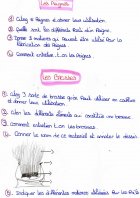 Les Peignes
① Citez 4 Peignes et donner leur utilisation
② Quelle sont les différents Parties d'un Peigne.
③ 3 matières qui Peuvent être utilisé Pour la
fabrication des Peignes
④ Comment entretien t.on les Peignes
Les Brosses
① Citez 3 sorte de brosse qu'on Peut utiliser en coiffure et
donner leur utilisation.
② Citer les différents éléments qui constitue une brosse
③ Comment entretien t.on les brosses
④ Donner le nom de ce matériel et annoter le dessin.
⑤ Indiquer les différentes matières utilisées Pour les